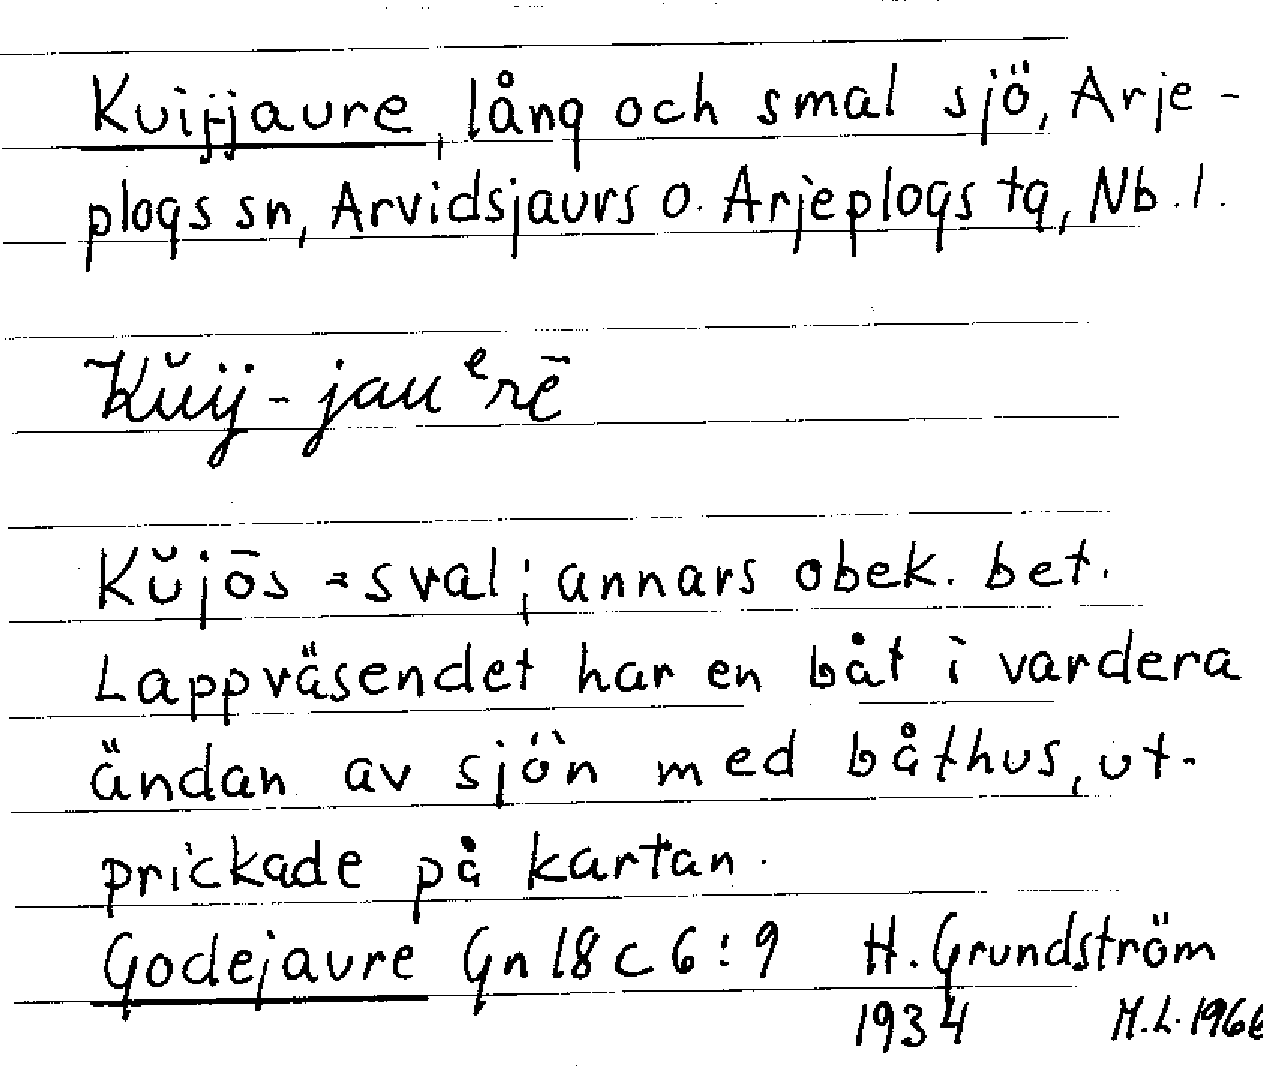 Kuijjaure, lång och smal sjö, Arje-
plogs sn, Arvidsjaurs o. Arjeplogs tg, Nb. l.
Kŭij-jauᵉrē̄
Kŭjōs = sval; annars obek. bet.
Lappväsendet har en båt i vardera
ändan av sjön med båthus, ut-
prickade på kartan.
Godejaure Gn 18 c 6:9 H. Grundström
1934 H.L. 1966